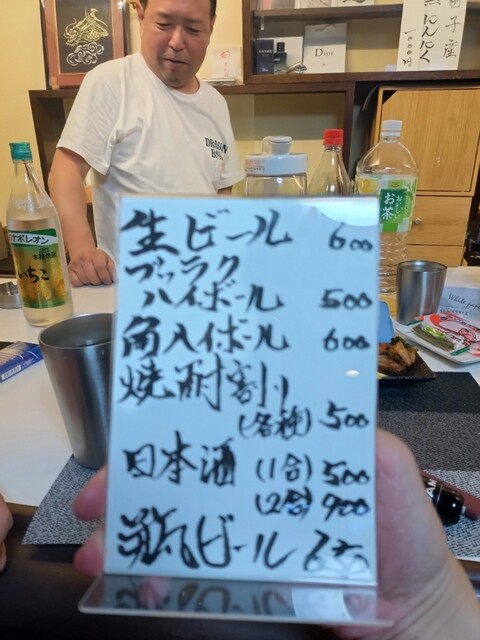 生ビール 600
ブラック
ハイボール 500
角ハイボール 600
焼酎割り
(各種) 500
日本酒 (1合) 500
(2合) 900
瓶ビール
Dior
にんにく
いちご
お茶